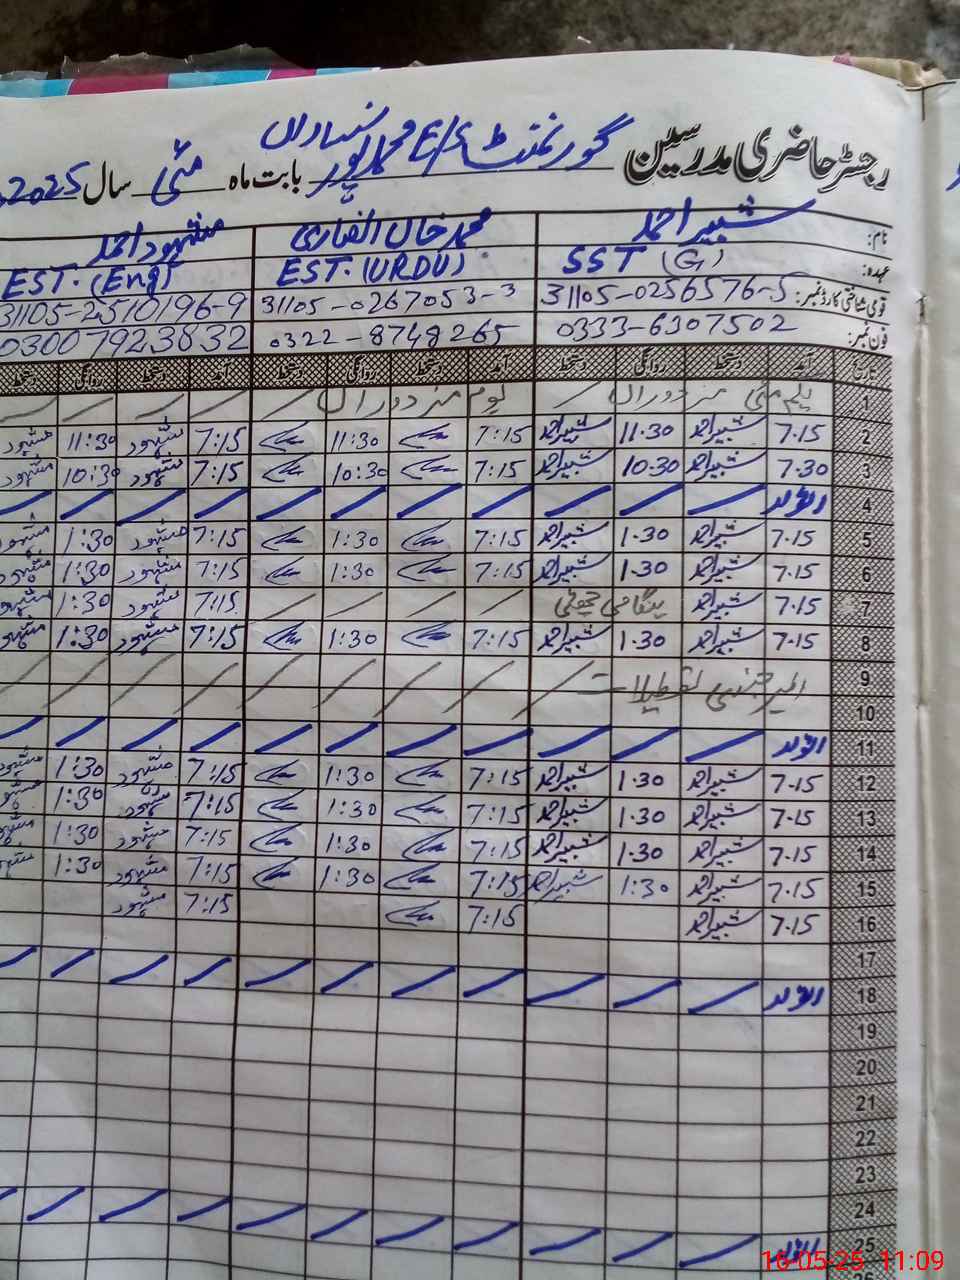 رجسٹر حاضری مدرسین گورنمنٹ E/S محمد پور نسارداں بابت ماہ مئی سال 2025
نام: شبیر احمد محمد خان الغاری مشہود احمد
عہدہ: SST (G) EST. (URDU) EST. (Eng)
قومی شناختی کارڈ نمبر: 31105-0256576-5 31105-0267053-3 31105-2510196-9
فون نمبر: 0333-6307502 0322-8748265 03007923832
تاریخ آمد دستخط روانگی دستخط آمد دستخط روانگی دستخط آمد دستخط روانگی دستخط
1 یکم مئی مزدوراں یوم مزدوراں
2 7.15 شبیر احمد 11.30 شبیر احمد 7:15 11:30 7:15 مشہود 11:30 مشہود
3 7.30 شبیر احمد 10.30 شبیر احمد 7:15 10:30 7:15 مشہود 10:30 مشہود
4 اتوار
5 7.15 شبیر احمد 1.30 شبیر احمد 7:15 1:30 7:15 مشہود 1:30 مشہود
6 7.15 شبیر احمد 1.30 شبیر احمد 7:15 1:30 7:15 مشہود 1:30 مشہود
7 7.15 شبیر احمد ہنگامی چھٹی 7:15 مشہود 1:30 مشہود
8 7.15 شبیر احمد 1.30 شبیر احمد 7:15 1:30 7:15 مشہود 1:30 مشہود
9 ایمرجنسی تعطیلات
10
11 اتوار
12 7.15 شبیر احمد 1.30 شبیر احمد 7:15 1:30 7:15 مشہود 1:30 مشہود
13 7.15 شبیر احمد 1.30 شبیر احمد 7:15 1:30 7:15 مشہود 1:30 مشہود
14 7.15 شبیر احمد 1.30 شبیر احمد 7:15 1:30 7:15 مشہود 1:30 مشہود
15 7.15 شبیر احمد 1:30 شبیر احمد 7:15 1:30 7:15 مشہود 1:30 مشہود
16 7.15 شبیر احمد 7:15 7:15 مشہود
17
18 اتوار
19
20
21
22
23
24
25 اتوار
16-05-25 11:09